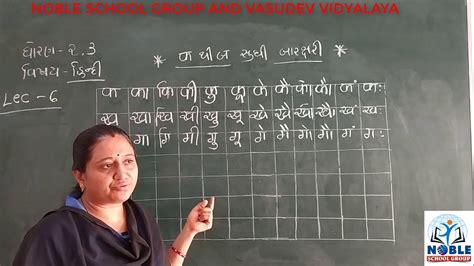 NOBLE SCHOOL GROUP AND VASUDEV VIDYALAYA
ધોરણ - ૨.3
વિષય - હિન્દી
Lec - 6
* क थी ज सुधी बारक्षरी *
क का कि की कु कू के कै को कौ कं कः
ख खा खि खी खु खू खे खै खो खौ खं खः
ग गा गि गी गु गू गे गै गो गौ गं गः
NOBLE
SCHOOL GROUP